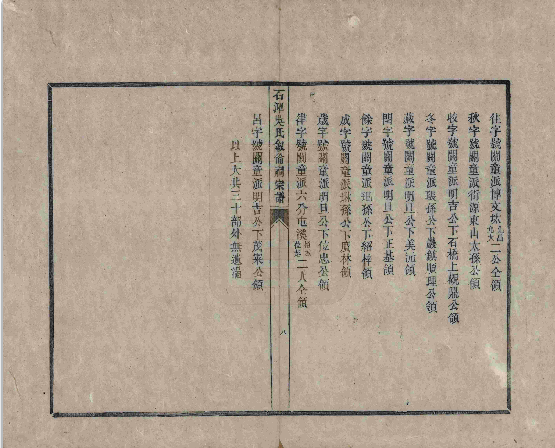 往字號閶童派博文墩二公仝領
秋字號閶童派街源東山太孫公領
收字號閶童派明吉公下石橋上觀鼎公領
冬字號閶童派璟孫公下叢麒順理公領
藏字號閶童派明且公下美沅領
閏字號閶童派明且公下正基領
餘字號閶童派珽孫公下紹梓領
成字號閶童派琳孫公下廣林領
歲字號閶童派明且公下位忠公領
律字號閶童派六分屯溪二人仝領
石潭吳氏敘倫祠宗譜
八
呂字號閶童派明吉公下茂榮公領
以上大共三十部外無遺漏